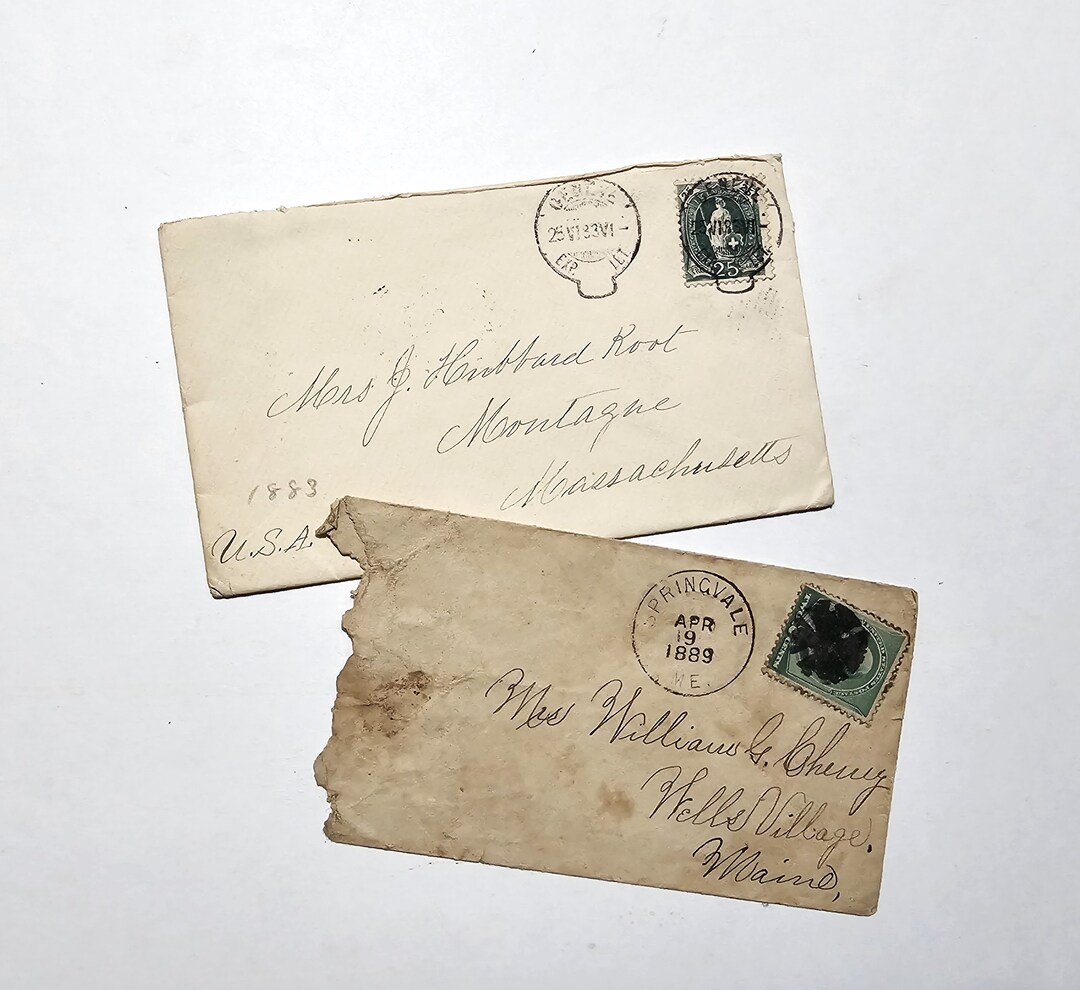 GENÈVE
25 VI 83 VI -
EXP. LET.
25
Mrs J. Hubbard Root
Montague
Massachusetts
1883
U.S.A.
SPRINGVALE
APR
19
1889
ME.
Mrs William G. Cheney
Wells Village,
Maine,